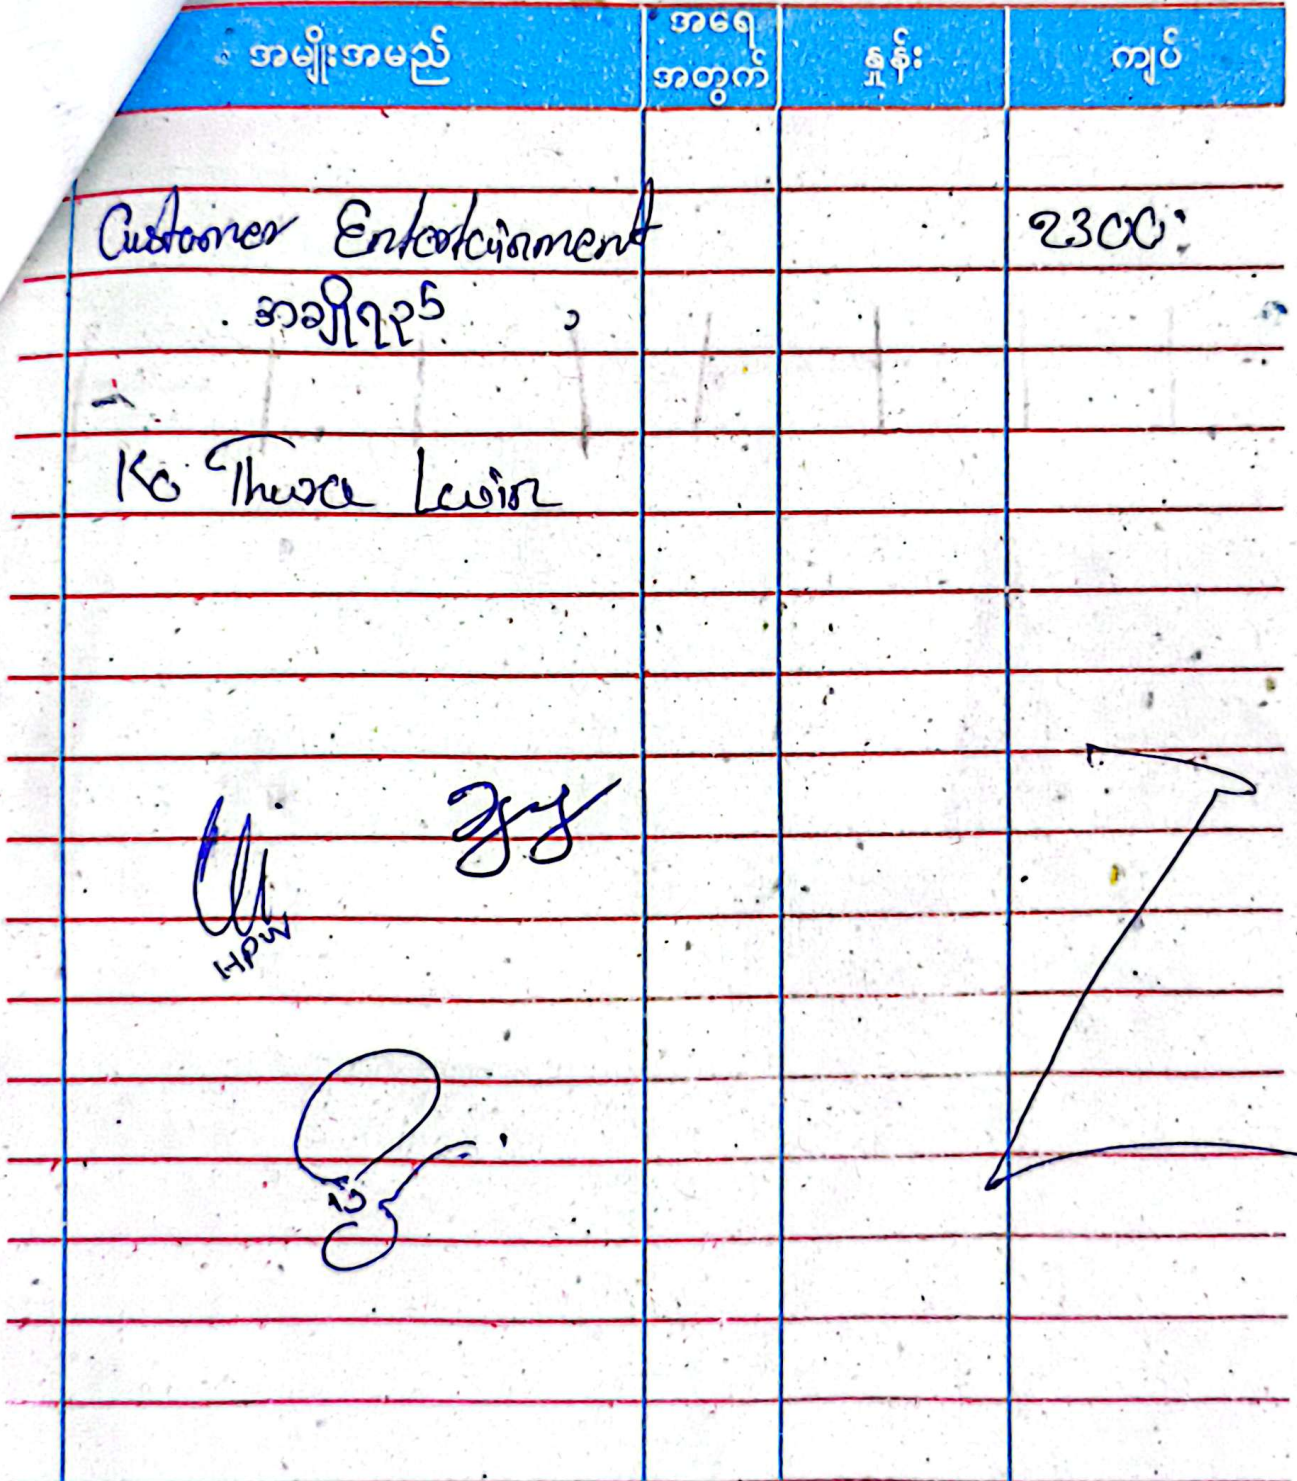 အမျိုးအမည် အရေအတွက် နှုန်း ကျပ်
Customer Entertainment 2300
အချိုရည်
Ko Thura Lwin
HPW